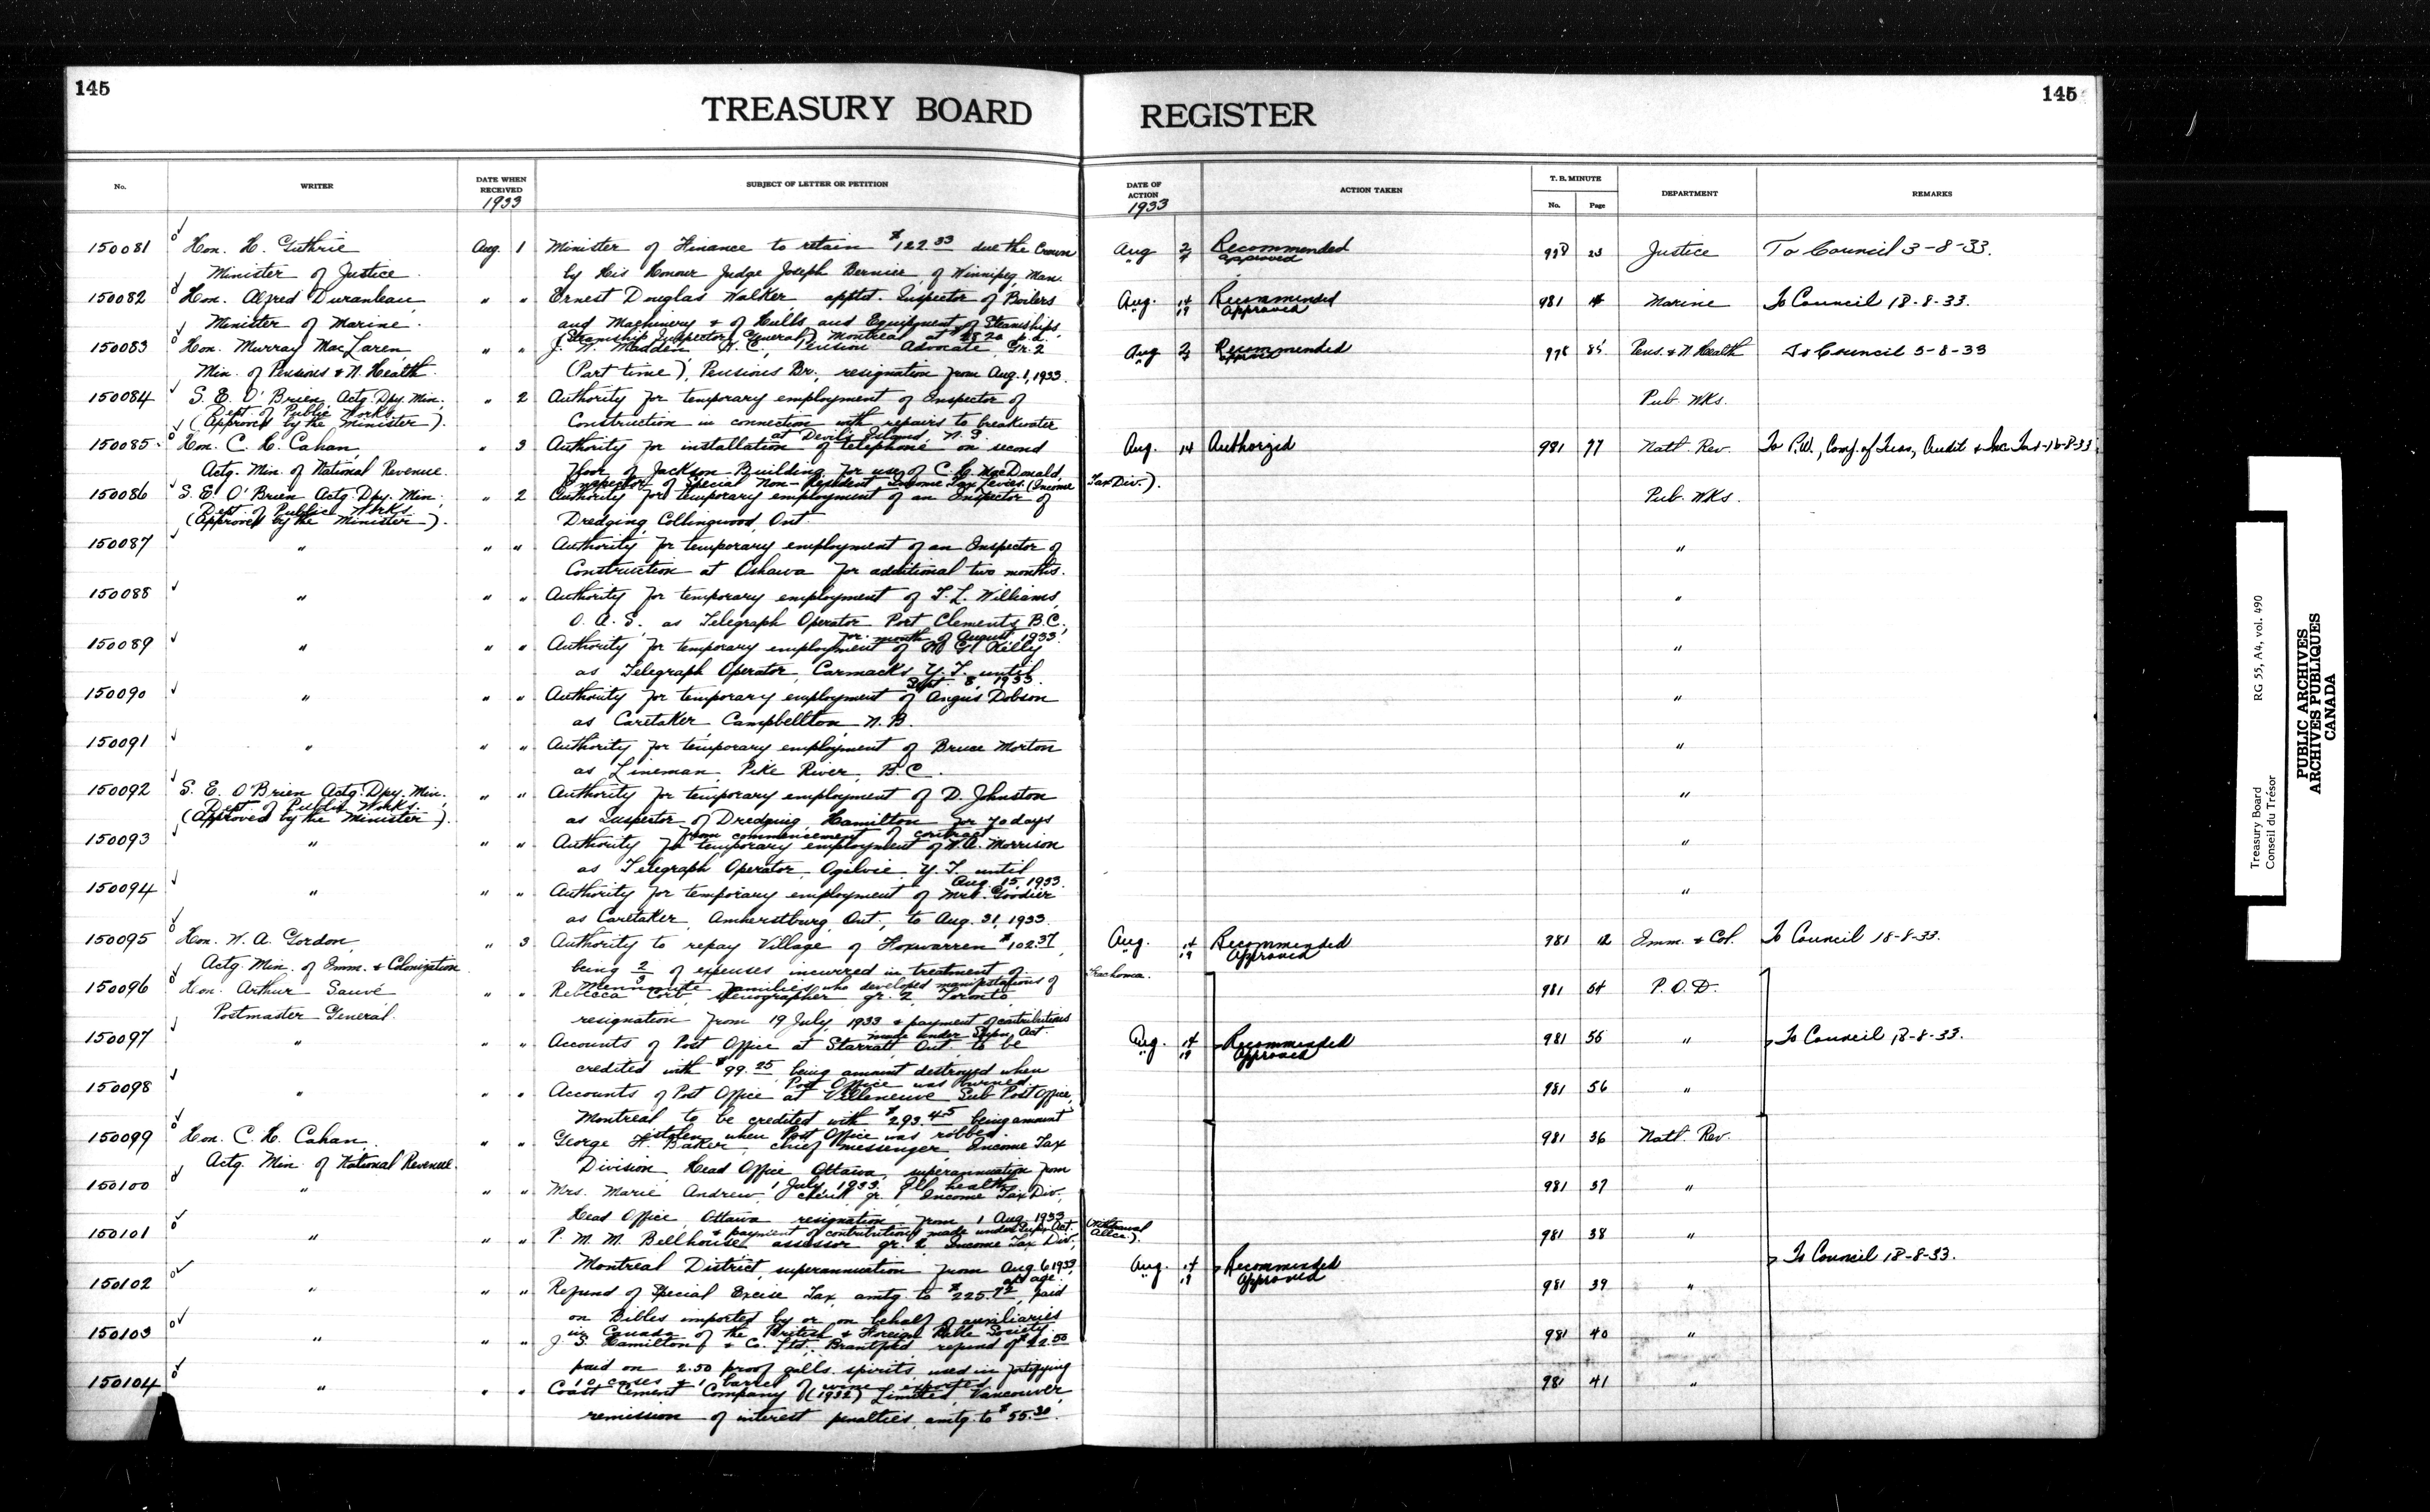 145
TREASURY BOARD
REGISTER
145
No.
WRITER
DATE WHEN RECEIVED
1933
SUBJECT OF LETTER OR PETITION
DATE OF ACTION
1933
ACTION TAKEN
T. B. MINUTE
No.
Page
DEPARTMENT
REMARKS
150081 Hon. H. Guthrie Aug. 1 Minister of Finance to retain $122.33 due the Crown Aug 2 Recommended 23 Justice To Council 3-8-33.
Minister of Justice by His Honour Judge Joseph Bernier, of Winnipeg, Man. Approved
150082 Hon. Alfred Duranleau, " " Ernest Douglas Walker apptd. Inspector of Boilers Aug. 14 Recommended 981 Marine To Council 18-8-33.
Minister of Marine. and Machinery & of Hulls and Equipment of Steamships " 19 Approved
(Steamship Inspector, General) Montreal at $1820 p.a.
150083 Hon. Murray MacLaren, " " J. W. Madden, K.C., Pension Advocate, Gr. 2 Aug 2 Recommended Pens. & N. Health To Council 3-8-33
Min. of Pensions & N. Health. (Part time), Pensions Br., resignation from Aug. 1, 1933.
150084 S. E. O'Brien, Actg. Dpy. Min., " 2 Authority for temporary employment of Inspector of Pub. Wks.
Dept. of Public Works
(Approved by the Minister). Construction in connection with repairs to breakwater
at Devil's Island, N.S.
150085 Hon. C. H. Cahan, " 3 Authority for installation of telephone on second Aug. 14 Authorized 981 77 Natl. Rev. To P.W., Comp. of Treas, Audit & Inc Tax-16-8-33
Actg. Min. of National Revenue. floor of Jackson Building for use of C. H. MacDonald,
Inspector of Special Non-Resident Income Tax Levies. (Income Tax Div.).
150086 S. E. O'Brien Actg. Dpy. Min. " 2 Authority for temporary employment of an Inspector of Pub. Wks.
Dept. of Public Works
(Approved by the Minister). Dredging, Collingwood, Ont.
150087 " " " Authority for temporary employment of an Inspector of "
Construction at Oshawa for additional two months.
150088 " " " Authority for temporary employment of T. L. Williams, "
O. A. S. as Telegraph Operator Port Clements, B.C.,
for month of August, 1933.
150089 " " " Authority for temporary employment of Kelly "
as Telegraph Operator, Carmacks, Y.T. until
Sept. 8, 1933.
150090 " " " Authority for temporary employment of Angus Dobson "
as Caretaker, Campbellton, N.B.
150091 " " " Authority for temporary employment of Bruce Morton "
as Lineman, Pike River, B.C.
150092 S. E. O'Brien Actg. Dpy. Min., " " Authority for temporary employment of D. Johnston "
Dept. of Public Works.
(Approved by the Minister). as Inspector of Dredging, Hamilton for 70 days
from commencement of contract
150093 " " " Authority for temporary employment of Morrison "
as Telegraph Operator, Ogilvie, Y.T. until
Aug. 15, 1933.
150094 " " " Authority for temporary employment of Mrs. Goodier "
as Caretaker, Amherstburg, Ont., to Aug. 31, 1933.
150095 Hon. W. A. Gordon, " 3 Authority to repay Village of Foxwarren $102.37, Aug. 14 Recommended 981 12 Imm. & Col. To Council 18-8-33.
Actg. Min. of Imm. & Colonization being 2/3 of expenses incurred in treatment of " 19 Approved
Mennonite families who developed manifestations of trachoma.
150096 Hon. Arthur Sauvé " " Rebecca Corb, stenographer gr. 2, Toronto, 981 54 P.O.D.
Postmaster General. resignation from 19 July, 1933 & payment of contributions
made under Supn. Act.
150097 " " " Accounts of Post Office at Starratt, Ont. to be Aug. 14 Recommended 981 55 " To Council 18-8-33.
credited with $99.25 being amount destroyed when " 19 Approved
Post Office was burned.
150098 " " " Accounts of Post Office at Villeneuve Sub Post Office, 981 56 "
Montreal to be credited with $293.45 being amount
stolen when Post Office was robbed
150099 Hon. C. H. Cahan, " " George H. Baker, chief messenger, Income Tax 981 36 Natl. Rev.
Actg. Min. of National Revenue. Division, Head Office, Ottawa, superannuation from
1 July, 1933. Ill health
150100 " " " Mrs. Marie Andrew, clerk gr. 1 Income Tax Div., 981 37 "
Head Office, Ottawa resignation from 1 Aug. 1933
& payment of contributions made under Supn. Act. (Withdrawal Allce.).
150101 " " " P. M. M. Bellhouse, assessor gr. 2, Income Tax Div., 981 38 "
Montreal District, superannuation from Aug 6 1933, Aug. 14 Recommended To Council 18-8-33.
age. " 19 Approved
150102 " " " Refund of Special Excise Tax, amtg. to paid 981 39 "
on Bibles imported by or on behalf of auxiliaries
in Canada of the British & Foreign Bible Society.
150103 " " " J. S. Hamilton & Co. Ltd., Brantford refund of 981 40 "
paid on 2.50 proof galls. spirits used in fortifying
10 cases & 1 barrel of wine exported
150104 " " " Coast Cement Company (1932) Limited, Vancouver, 981 41 "
remission of interest penalties amtg. to $55.30.
Treasury Board RG 55, A4, vol. 490
Conseil du Trésor
PUBLIC ARCHIVES
ARCHIVES PUBLIQUES
CANADA